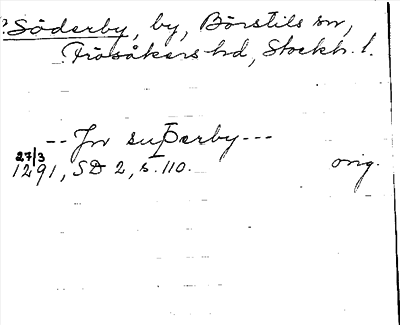 ?Söderby, by, Börstils sn,
Frösåkers hd, Stockh. l.
-- Jn suþerby ---
27/3
1291, SD 2, s. 110. orig.